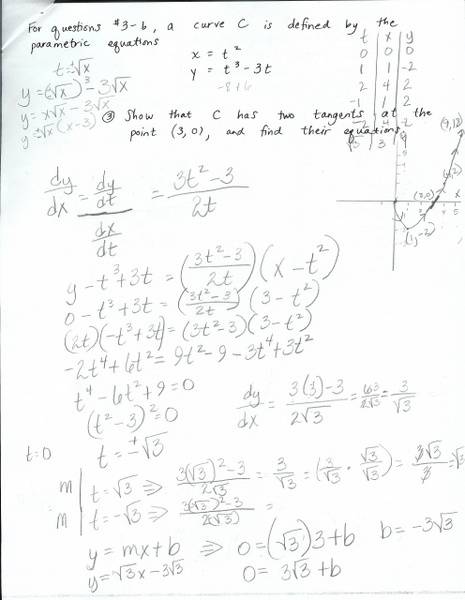 For questions #3-6, a curve C is defined by the
parametric equations
x = t²
y = t³ - 3t
-8+6
t=±√x
y=(√x)³-3√x
y=x√x - 3√x
y=±√x(x-3)
t x y
0 0 0
1 1 -2
2 4 2
-1 1 2
-2 4 -2
√3 3
③ Show that C has two tangents at the
point (3,0), and find their equations
(9,18)
(4,2)
(3,0)
(1,-2)
x
4 5
dy/dx = (dy/dt)/(dx/dt) = (3t²-3)/2t
y-t³+3t = ((3t²-3)/2t)(x-t²)
0-t³+3t = ((3t²-3)/2t)(3-t²)
(2t)(-t³+3t) = (3t²-3)(3-t²)
-2t⁴+6t² = 9t²-9-3t⁴+3t²
t⁴-6t²+9=0
(t²-3)²=0
t=±√3
dy/dx = (3(3)-3)/2√3 = 6/2√3 = 3/√3
t=0
m | t=√3 ⇒ (3(√3)²-3)/2√3 = 3/√3 = (3/√3 · √3/√3) = 3√3/3 = √3
m | t=-√3 ⇒ (3(-√3)²-3)/2(√3) =
y = mx+b ⇒ 0=(√3)3+b b=-3√3
y=√3x-3√3 0= 3√3+b